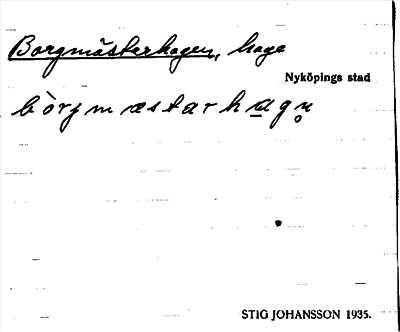 Borgmästerhagen, hage
Nyköpings stad
bòrjmæstarhagn̥
STIG JOHANSSON 1935.